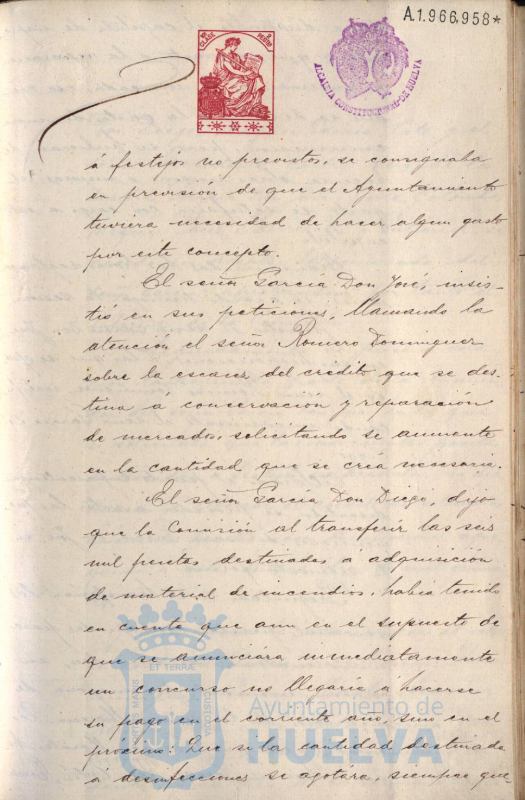 A.1.966,958*
ALCALDIA CONSTITUCIONAL DE HUELVA
á festejos no previstos, se consignaba
en prevision de que el Ayuntamiento
tuviera necesidad de hacer algun gasto
por este concepto.
El señor Garcia Don José, insis-
tió en sus peticiones, llamando la
atención el señor Romero Dominguez
sobre la escasez del credito que se des-
tina á conservación y reparación
de mercados, solicitando se aumente
en la cantidad que se créa necesaria.
El señor Garcia Don Diego, dijo
que la Comisión al transferir las seis
mil pesetas destinadas á adquisición
de material de incendios, habia tenido
en cuenta que aun en el supuesto de
que se anunciára inmediatamente
un concurso no llegaria á hacerse
su pago en el corriente año, sino en el
próximo: Que si la cantidad destinada
á desinfecciones se agotára, siempre que-
ET TERRÆ
Ayuntamiento de
HUELVA